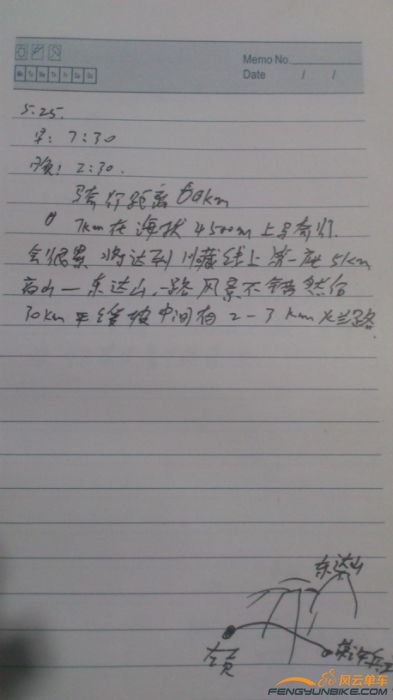 Memo No.
Date / /
5.25.
早: 7:30
晚: 2:30.
骑行距离 60km
7km 在海拔 4500m 上
会很累 将达到川藏线上第一座 5km
高山—东达山,一路风景不错 然后
30km 平缓坡中间有 2-3 km 烂路
东达山
左贡
荣许兵站
风云单车
FENGYUNBIKE.COM